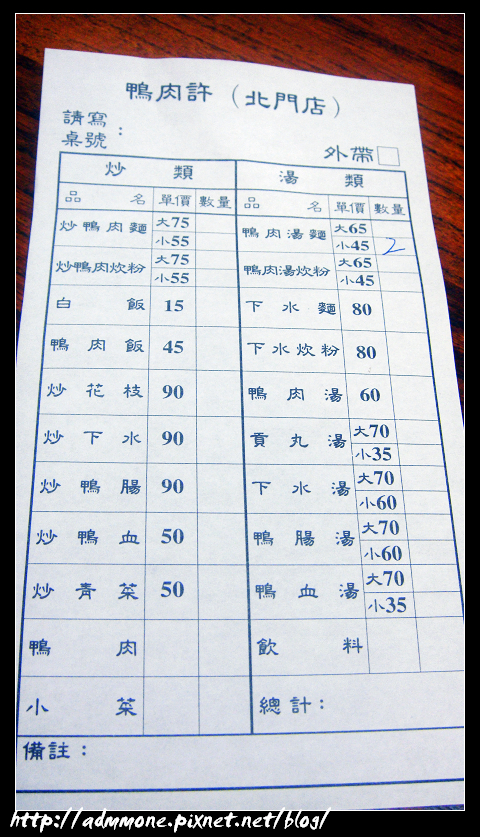 鴨肉許（北門店）
請寫
桌號：
外帶□
炒類 湯類
品名 單價 數量 品名 單價 數量
炒鴨肉麵 大75 鴨肉湯麵 大65
小55 小45 2
炒鴨肉炊粉 大75 鴨肉湯炊粉 大65
小55 小45
白飯 15 下水麵 80
鴨肉飯 45 下水炊粉 80
炒花枝 90 鴨肉湯 60
炒下水 90 貢丸湯 大70
小35
炒鴨腸 90 下水湯 大70
小60
炒鴨血 50 鴨腸湯 大70
小60
炒青菜 50 鴨血湯 大70
小35
鴨肉 飲料
小菜 總計：
備註：
http://admmone.pixnet.net/blog/